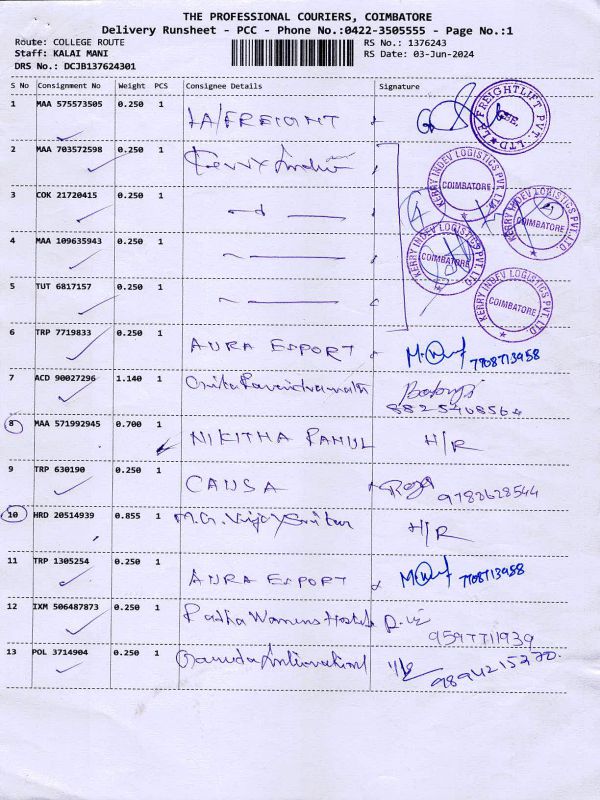 THE PROFESSIONAL COURIERS, COIMBATORE
Delivery Runsheet - PCC - Phone No.:0422-3505555 - Page No.:1
Route: COLLEGE ROUTE RS No.: 1376243
Staff: KALAI MANI RS Date: 03-Jun-2024
DRS No.: DCJB137624301
S No Consignment No Weight PCS Consignee Details Signature
1 MAA 575573505 0.250 1 IA/FREIGHT
2 MAA 703572598 0.250 1 Kerry Indev
3 COK 21720415 0.250 1
4 MAA 109635943 0.250 1
5 TUT 6817157 0.250 1
KERRY INDEV LOGISTICS PVT. LTD. COIMBATORE
KERRY INDEV LOGISTICS PVT. LTD. COIMBATORE
KERRY INDEV LOGISTICS PVT. LTD. COIMBATORE
KERRY INDEV LOGISTICS PVT. LTD. COIMBATORE
6 TRP 7719833 0.250 1 AURA ESPORT 7708713958
7 ACD 90027296 1.140 1
8 MAA 571992945 0.700 1 NIKITHA H/R
9 TRP 630190 0.250 1 CAUSA
10 HRD 20514939 0.855 1 H/R
11 TRP 1305254 0.250 1 AURA ESPORT 7708713958
12 IXM 506487873 0.250 1 Womens Hostel 9597711939
13 POL 3714904 0.250 1